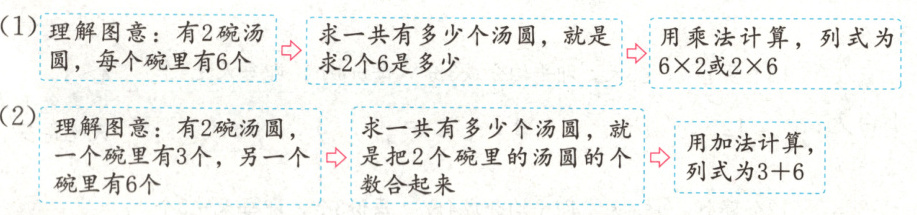 (1) 理解图意：有2碗汤圆，每个碗里有6个 ⇨ 求一共有多少个汤圆，就是求2个6是多少 ⇨ 用乘法计算，列式为6×2或2×6
(2) 理解图意：有2碗汤圆，一个碗里有3个，另一个碗里有6个 ⇨ 求一共有多少个汤圆，就是把2个碗里的汤圆的个数合起来 ⇨ 用加法计算，列式为3+6